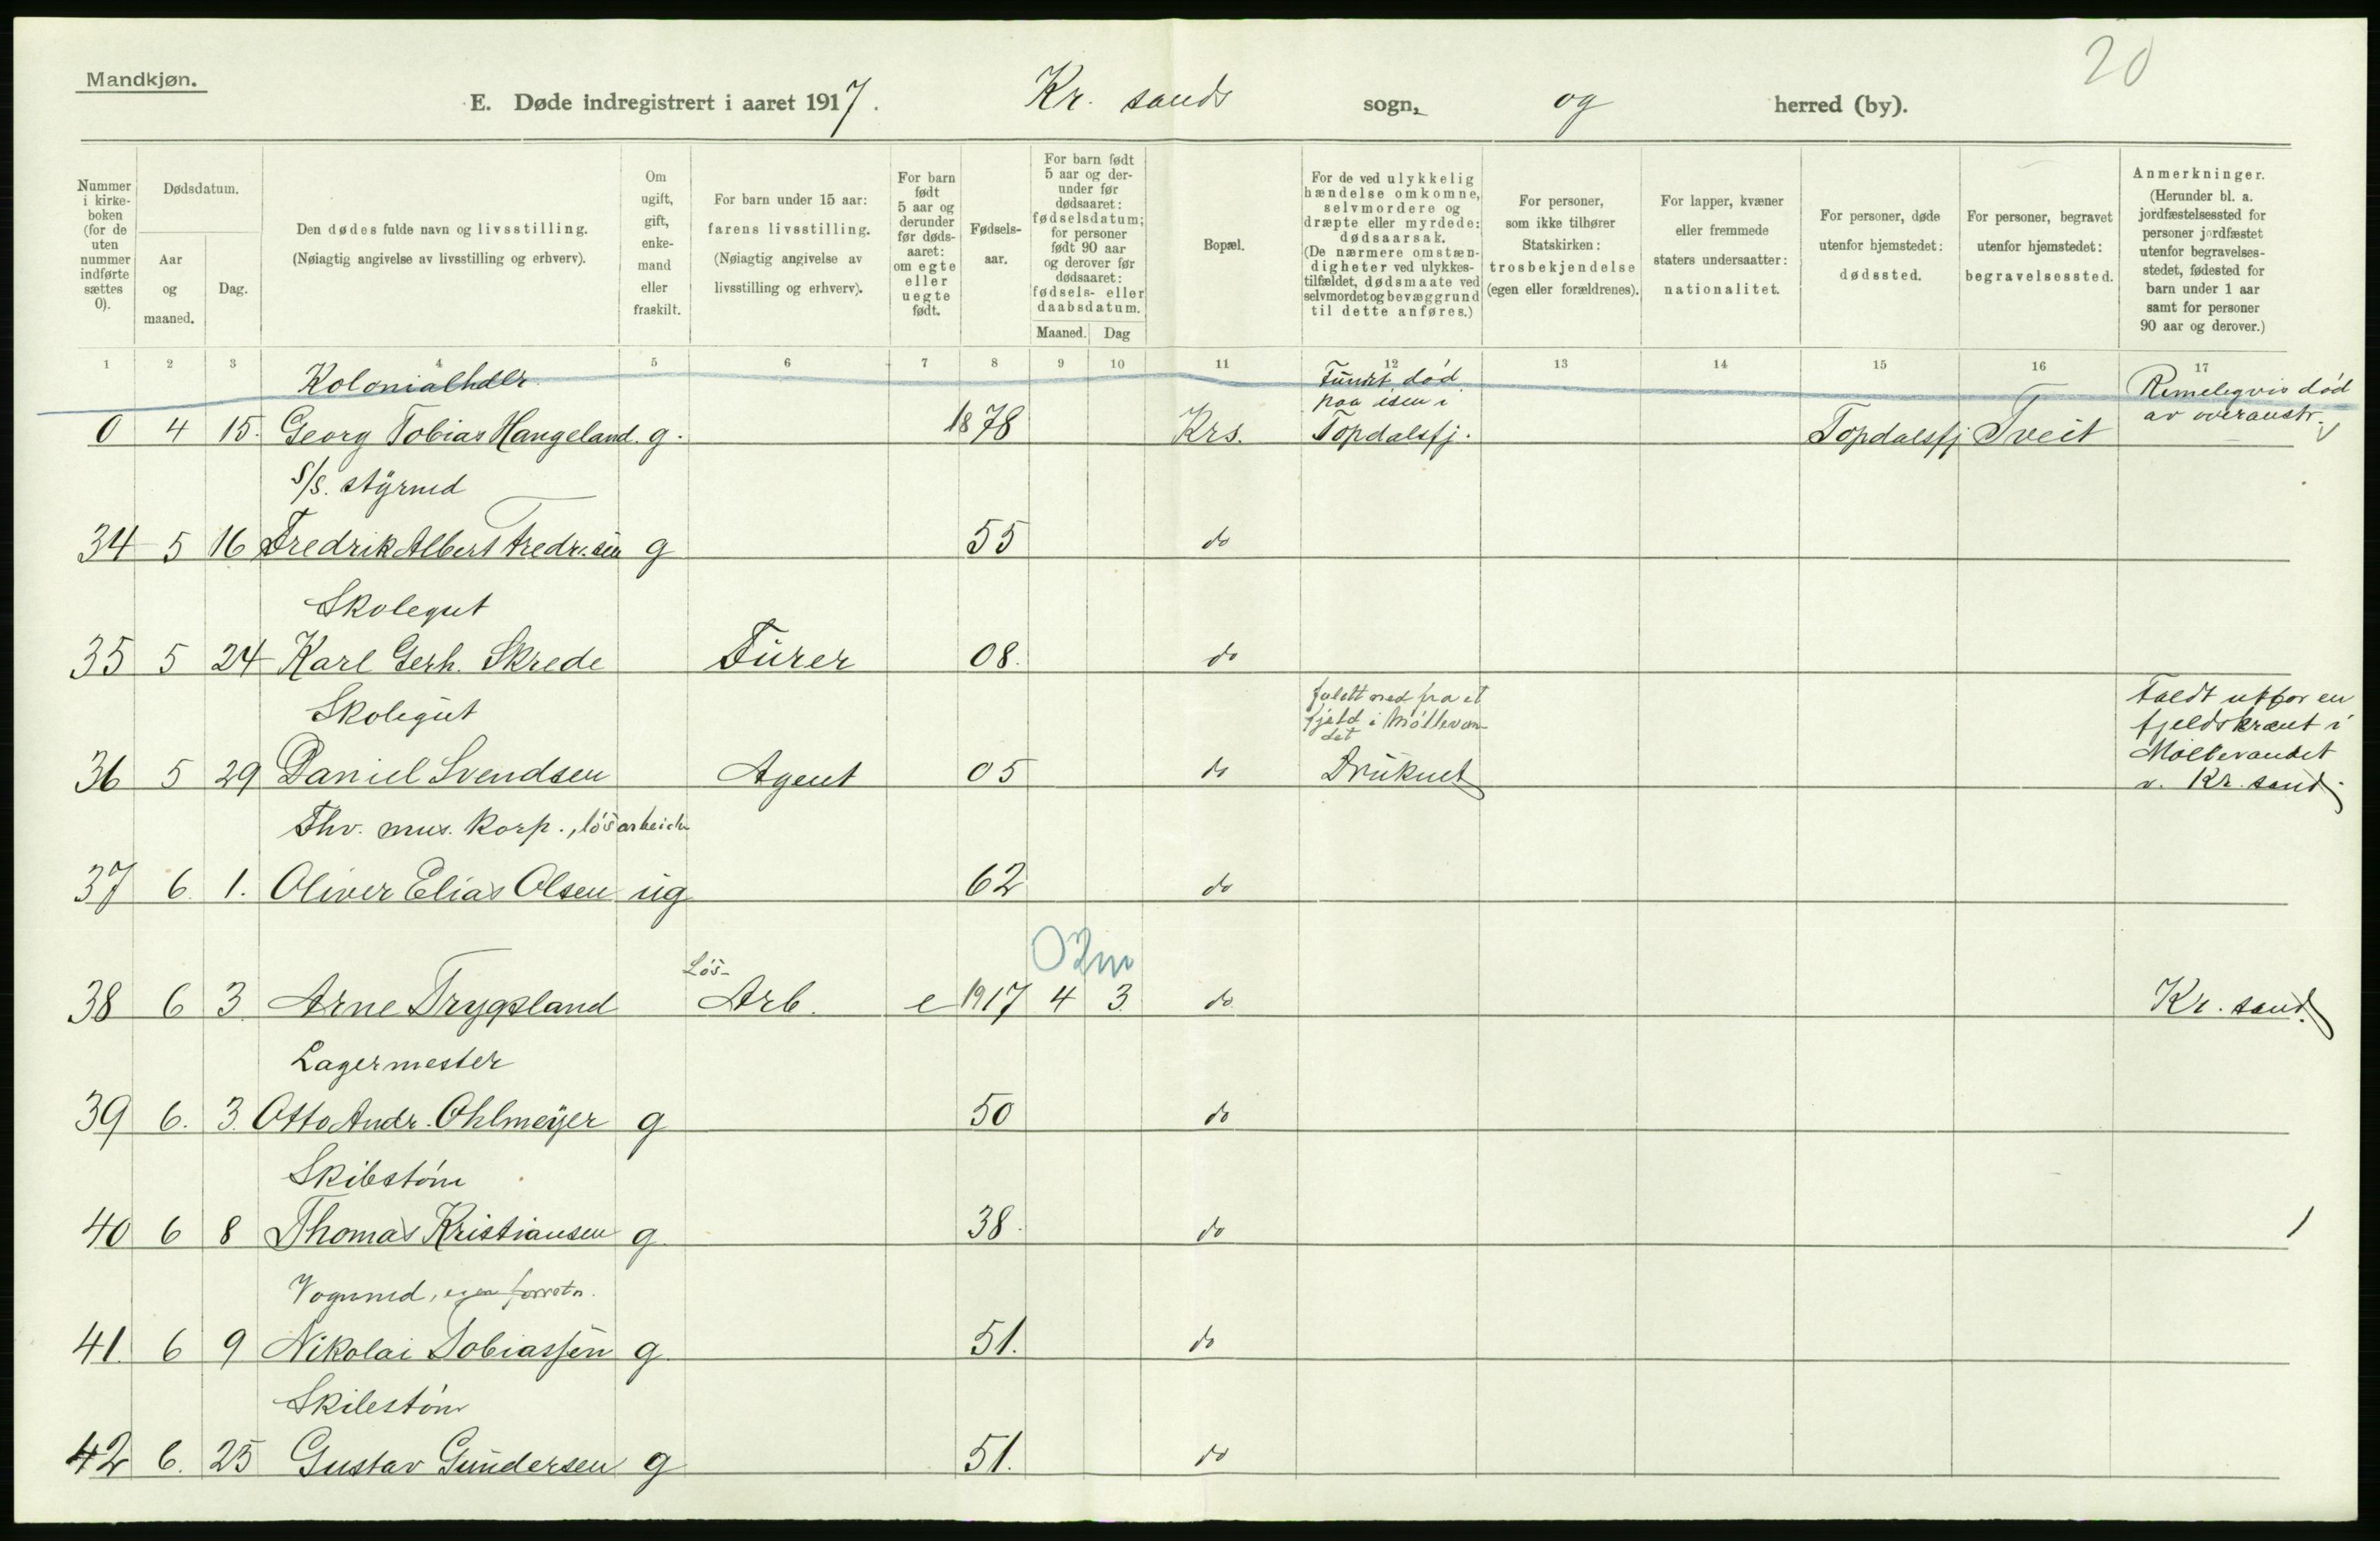 20
Mandkjøn.
E. Døde indregistrert i aaret 1917. Kr. sands sogn, og herred (by).
Nummer i kirkeboken (for de uten nummer indførte sættes 0).
Dødsdatum.
Aar og maaned.
Dag.
Den dødes fulde navn og livsstilling. (Nøiagtig angivelse av livsstilling og erhverv).
Om ugift, gift, enkemand eller fraskilt.
For barn under 15 aar: farens livsstilling. (Nøiagtig angivelse av livsstilling og erhverv).
For barn født 5 aar og derunder før dødsaaret: om egte eller uegte født.
Fødselsaar.
For barn født 5 aar og derunder før dødsaaret: fødselsdatum; for personer født 90 aar og derover før dødsaaret: fødsels- eller daabsdatum.
Maaned. Dag
Bopæl.
For de ved ulykkelig hændelse omkomne, selvmordere og dræpte eller myrdede: dødsaarsak. (De nærmere omstændigheter ved ulykkestilfældet, dødsmaate ved selvmordet og bevæggrund til dette anføres.)
For personer, som ikke tilhører Statskirken: trosbekjendelse (egen eller forældrenes).
For lapper, kvæner eller fremmede staters undersaatter: nationalitet.
For personer, døde utenfor hjemstedet: dødssted.
For personer, begravet utenfor hjemstedet: begravelsessted.
Anmerkninger. (Herunder bl. a. jordfæstelsessted for personer jordfæstet utenfor begravelsesstedet, fødested for barn under 1 aar samt for personer 90 aar og derover.)
1 2 3 4 5 6 7 8 9 10 11 12 13 14 15 16 17
Kolonialhdlr. Fundet død paa isen i Rimeligvis død av overanstr.
0 4 15. Georg Tobias Hangeland. g. 1878 Krs. Topdalsfj. Topdalsfj Tveit
S/S. styrmd
34 5 16 Fredrik Albert Fredr.sen g 55 do
Skolegut
35 5 24 Karl Gerh. Skrede Furer 08. do
Skolegut faldt ned fra et fjeld i Møllevandet Faldt utfor en fjeldskrænt i Møllevandet v. Kr. sand.
36 5 29 Daniel Svendsen Agent 05 do Druknet
Fhv. mus. korp., løsarbeid
37 6. 1. Oliver Elias Olsen ug 62 do
0 2m
Løs-
38 6 3. Arne Trygsland Arb. e 1917 4 3. do Kr. sand.
Lagermester
39 6. 3. Otto Andr. Ohlmeyer g 50 do
Skibstøm
40 6 8 Thomas Kristiansen g. 38. do 1
Vognmd, egen forretn.
41. 6 9 Nikolai Tobiassen g. 51. do
Skibstøm
42 6. 25 Gustav Gundersen g 51. do